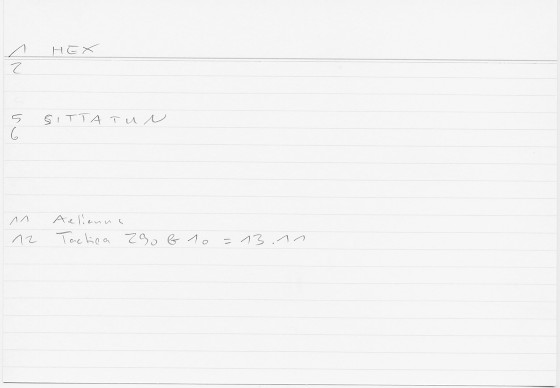 1 HEX
2
5 SITTATUN
6
11 Aelianus
12 Tactica 290 G 10 = 13.11